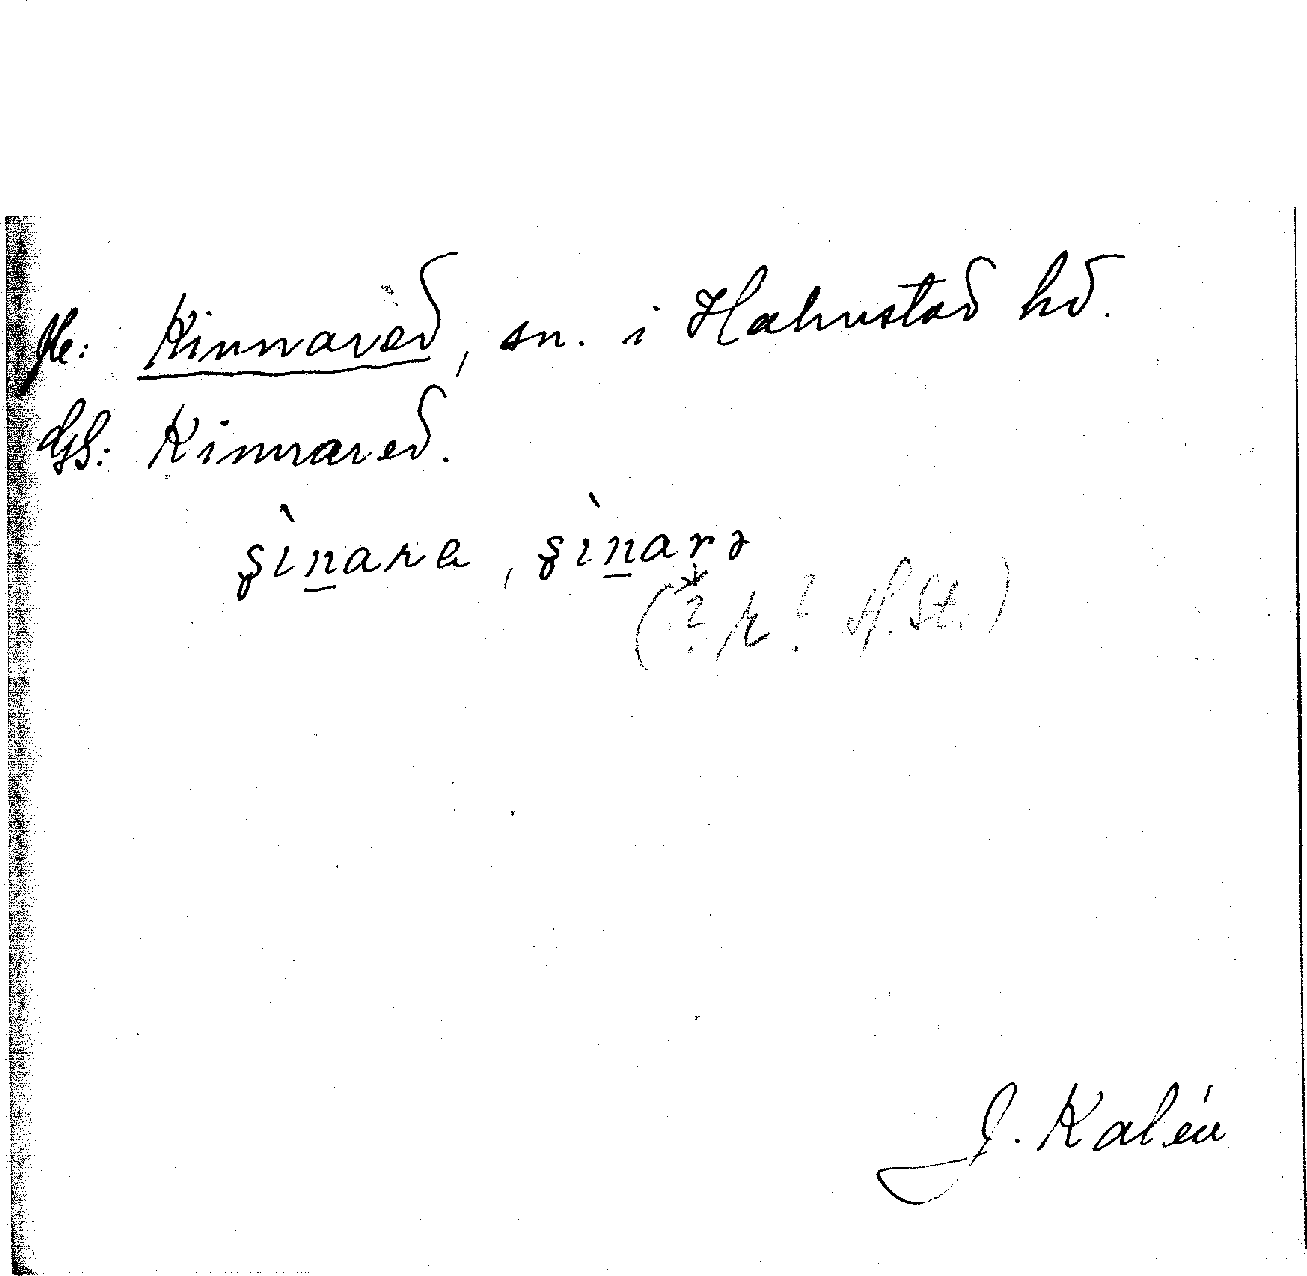 Kinnared, sn. i Halmstad hd.
GS: Kinnared.
şìn̲ara, şìn̲arə
(? r? H.St.)
J. Kalén